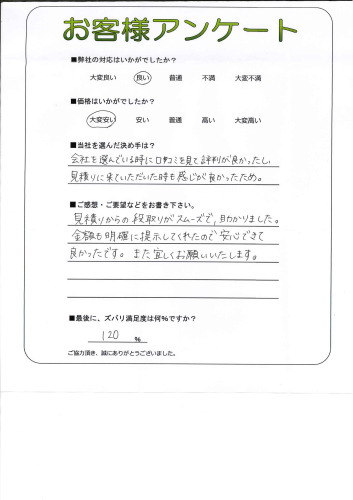 お客様アンケート
■弊社の対応はいかがでしたか?
大変良い 良い 普通 不満 大変不満
■価格はいかがでしたか?
大変安い 安い 普通 高い 大変高い
■当社を選んだ決め手は?
会社を選んでいる時に口コミを見て評判が良かったし、
見積りに来ていただいた時も感じが良かったため。
■ご感想・ご要望などをお書き下さい。
見積りからの段取りがスムーズで、助かりました。
金額も明確に提示してくれたので安心できて
良かったです。また宜しくお願いいたします。
■最後に、ズバリ満足度は何%ですか?
120 %
ご協力頂き、誠にありがとうございました。